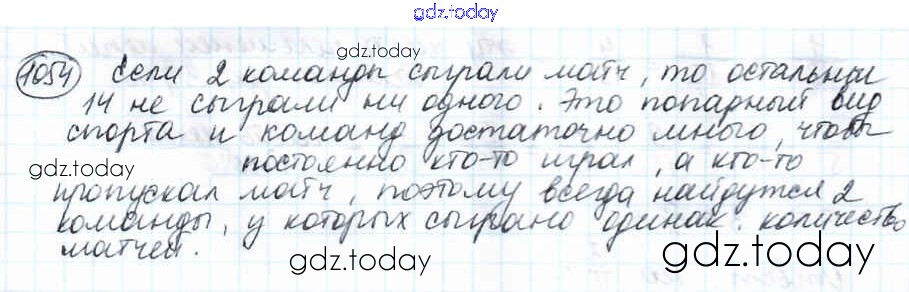 gdz.today
gdz.today
1054 Если 2 команды сыграли матч, то остальные
14 не сыграли ни одного. Это попарный вид
спорта и команд достаточно много, чтобы
gdz.today постоянно кто-то играл, а кто-то
пропускал матч, поэтому всегда найдутся 2
команды, у которых сыграно одинак. количество
матчей.
gdz.today
gdz.today